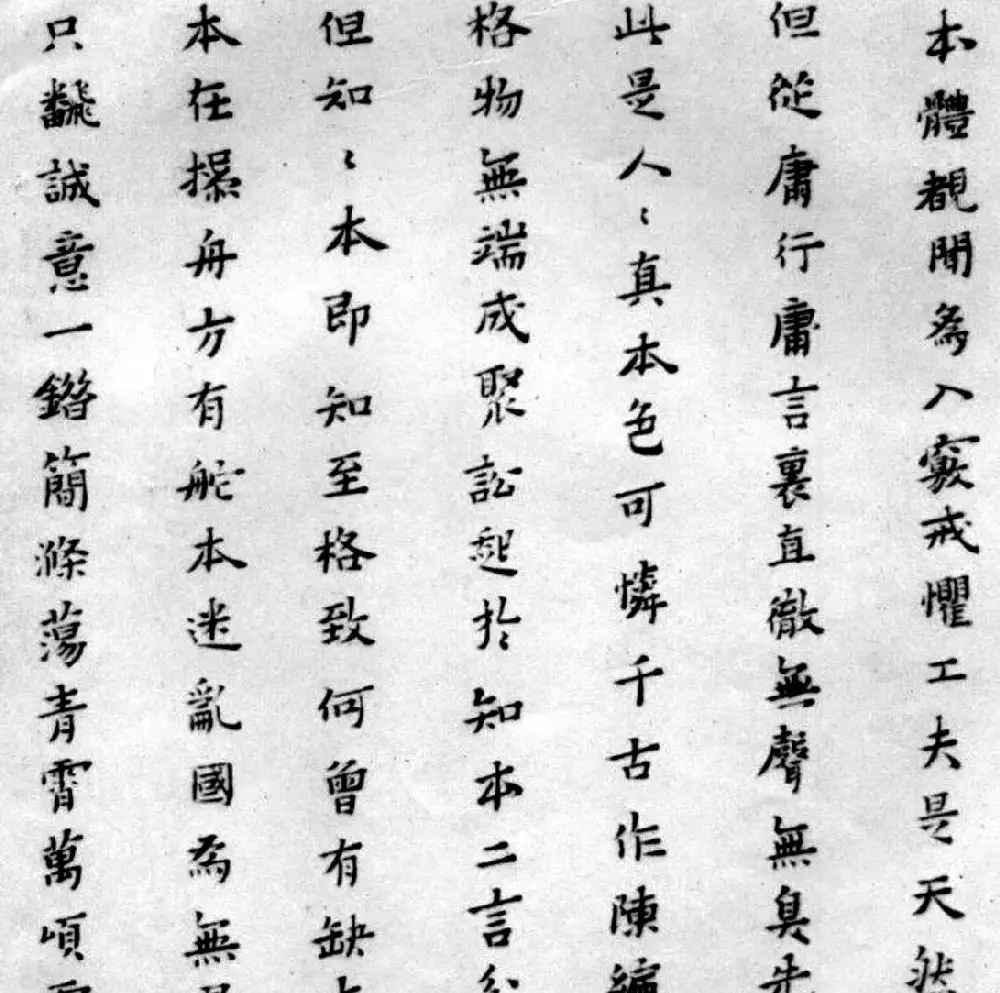 本體覩聞為入竅戒懼工夫是天然
但從庸行庸言裏直徹無聲無臭先
此是人〻真本色可憐千古作陳編
格物無端成聚訟起於知本二言
但知〻本即知至格致何曾有缺
本在操舟方有舵本迷亂國為無
只飜誠意一鐕簡滌蕩青霄萬頃